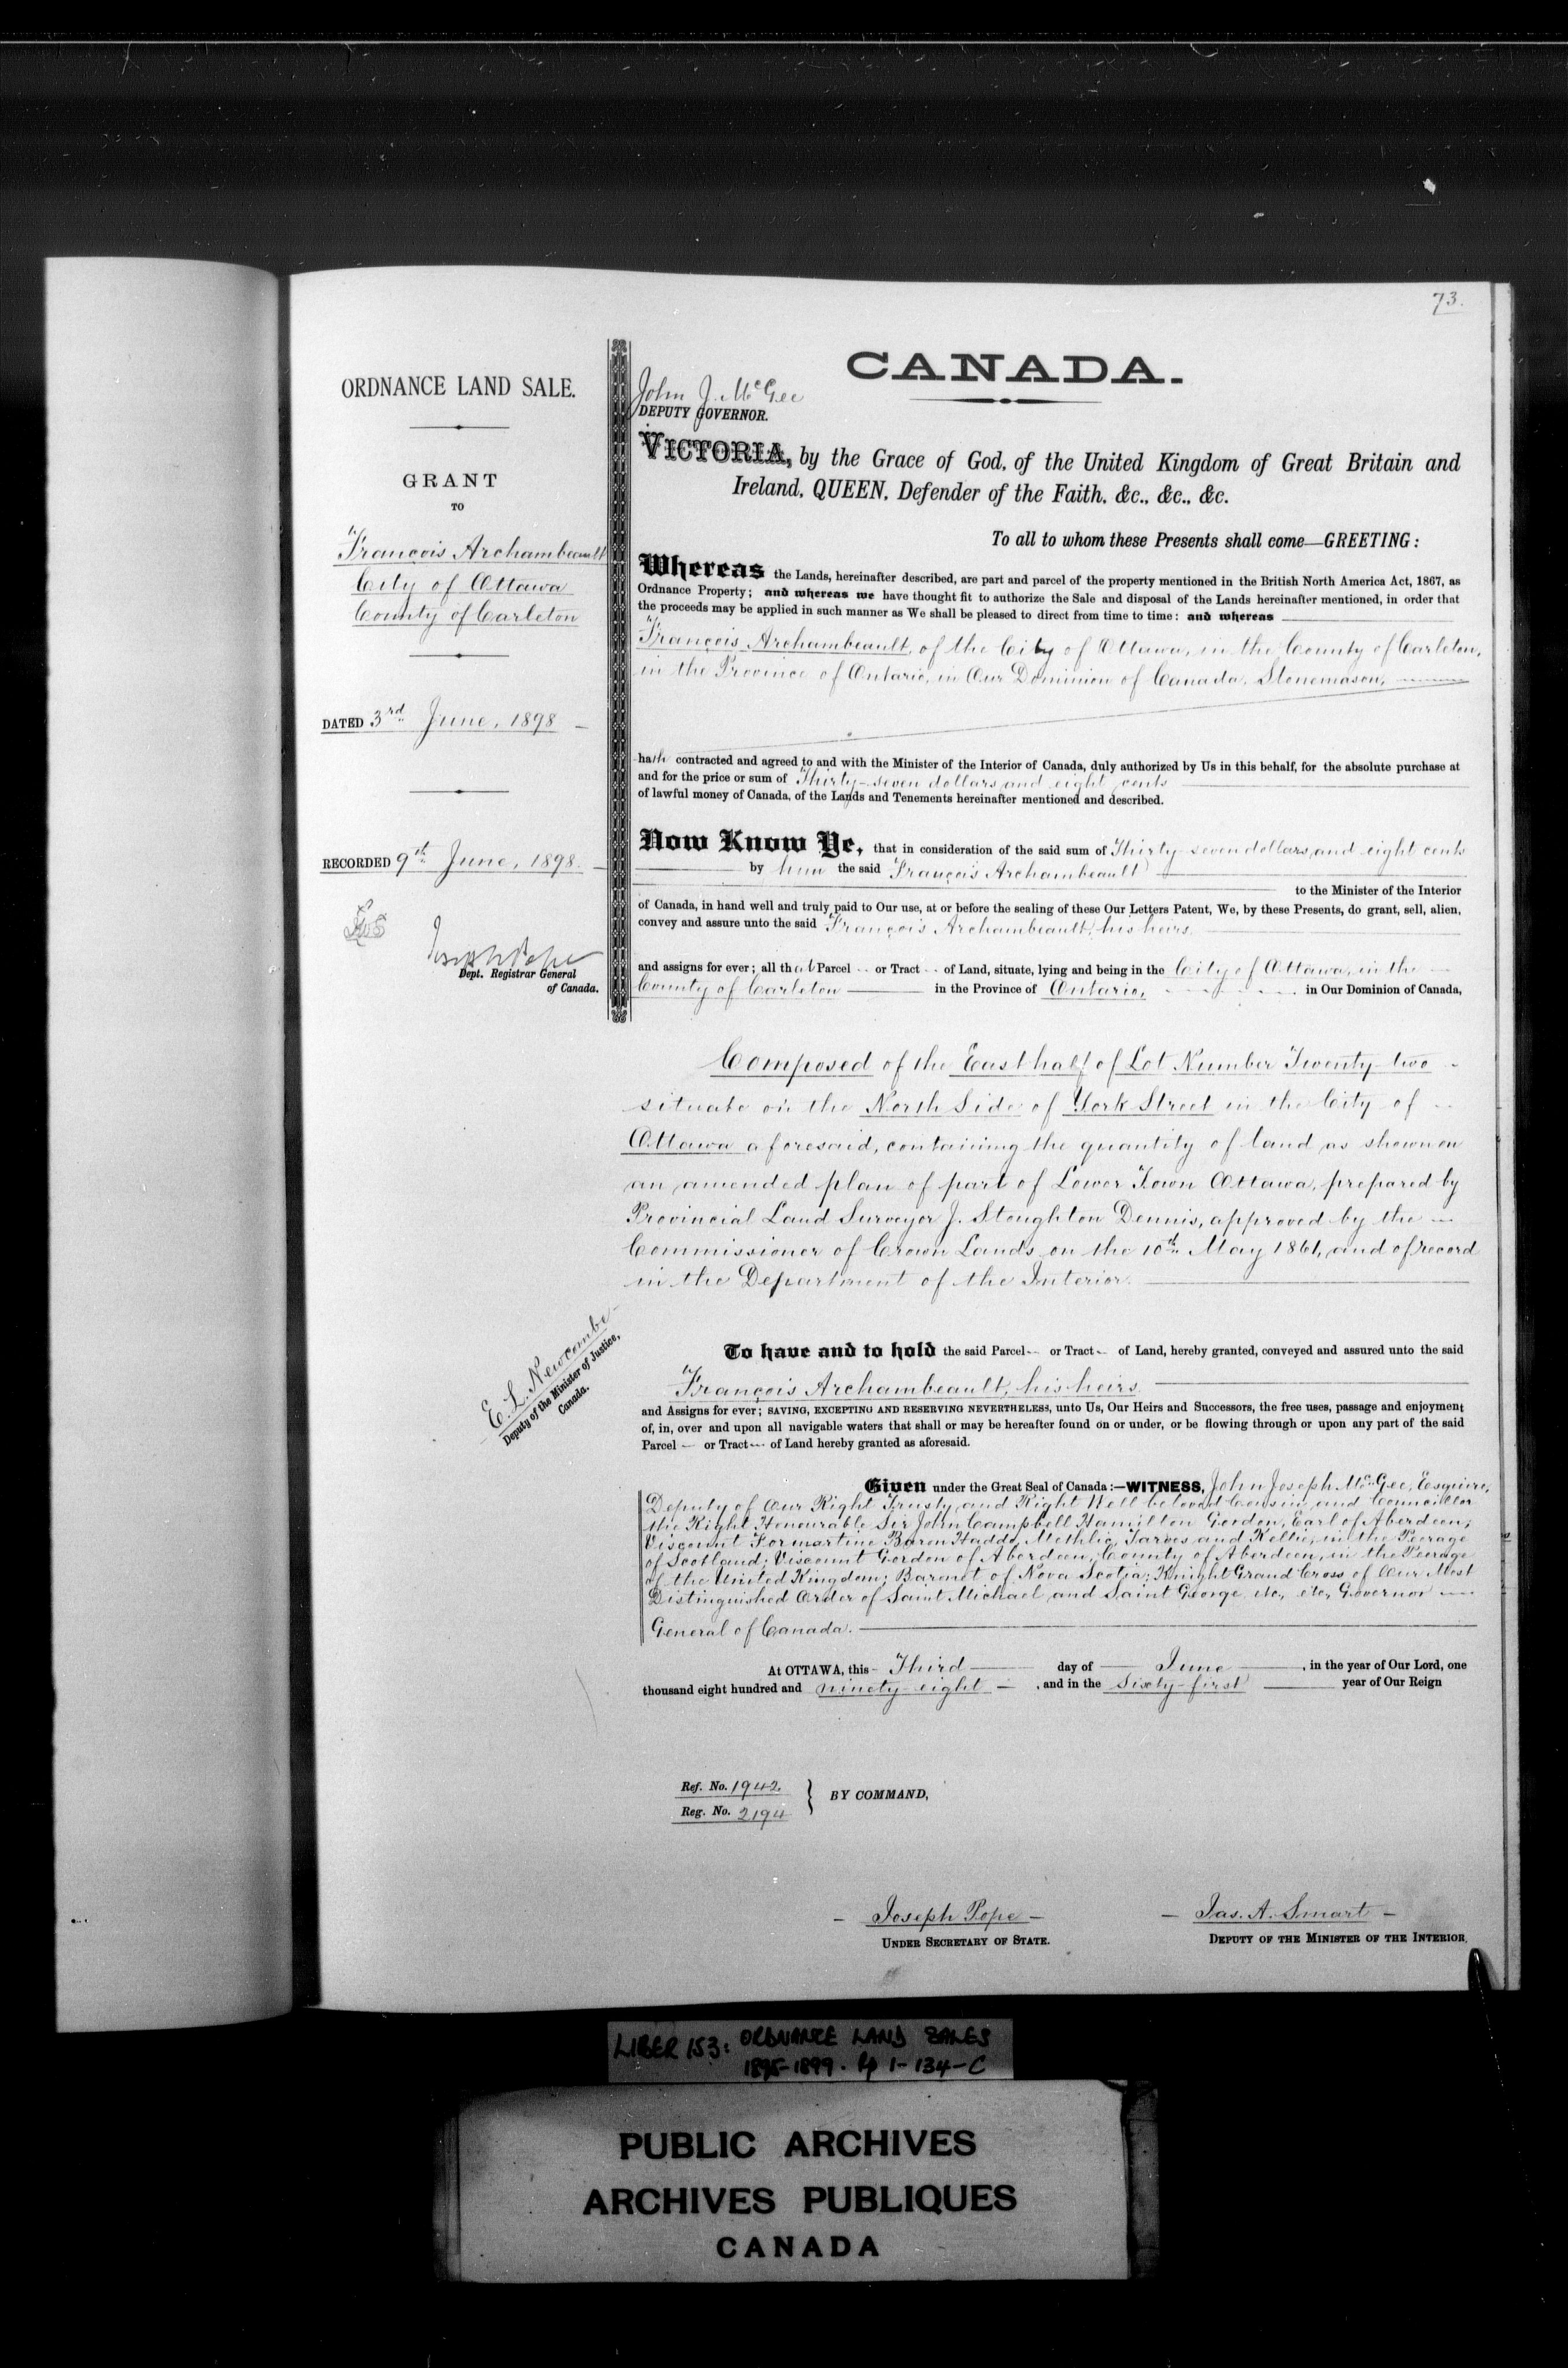 73.
ORDNANCE LAND SALE.
GRANT
TO
François Archambeault
City of Ottawa
County of Carleton
DATED 3rd June, 1898 –
RECORDED 9th June, 1898. –
Joseph Pope
Dept. Registrar General
of Canada.
E. L. Newcombe
Deputy of the Minister of Justice,
Canada.
CANADA.
John J. McGee
DEPUTY GOVERNOR.
VICTORIA, by the Grace of God, of the United Kingdom of Great Britain and
Ireland, QUEEN, Defender of the Faith, &c., &c., &c.
To all to whom these Presents shall come—GREETING:
Whereas the Lands, hereinafter described, are part and parcel of the property mentioned in the British North America Act, 1867, as
Ordnance Property; and whereas we have thought fit to authorize the Sale and disposal of the Lands hereinafter mentioned, in order that
the proceeds may be applied in such manner as We shall be pleased to direct from time to time: and whereas
François Archambeault, of the City of Ottawa, in the County of Carleton,
in the Province of Ontario, in Our Dominion of Canada, Stonemason,
hath contracted and agreed to and with the Minister of the Interior of Canada, duly authorized by Us in this behalf, for the absolute purchase at
and for the price or sum of Thirty-seven dollars and eight cents
of lawful money of Canada, of the Lands and Tenements hereinafter mentioned and described.
Now Know Ye, that in consideration of the said sum of Thirty-seven dollars and eight cents
by him the said François Archambeault
to the Minister of the Interior
of Canada, in hand well and truly paid to Our use, at or before the sealing of these Our Letters Patent, We, by these Presents, do grant, sell, alien,
convey and assure unto the said François Archambeault, his heirs
and assigns for ever; all that Parcel -- or Tract -- of Land, situate, lying and being in the City of Ottawa, in the
County of Carleton in the Province of Ontario, in Our Dominion of Canada,
Composed of the East half of Lot Number Twenty-two
situate on the North Side of York Street in the City of
Ottawa aforesaid, containing the quantity of land as shown on
an amended plan of part of Lower Town Ottawa, prepared by
Provincial Land Surveyor J. Stoughton Dennis, approved by the
Commissioner of Crown Lands on the 10th May 1861, and of record
in the Department of the Interior.
To have and to hold the said Parcel -- or Tract -- of Land, hereby granted, conveyed and assured unto the said
François Archambeault, his heirs
and Assigns for ever; SAVING, EXCEPTING AND RESERVING NEVERTHELESS, unto Us, Our Heirs and Successors, the free uses, passage and enjoyment
of, in, over and upon all navigable waters that shall or may be hereafter found on or under, or be flowing through or upon any part of the said
Parcel — or Tract -- of Land hereby granted as aforesaid.
Given under the Great Seal of Canada:—WITNESS, John Joseph McGee, Esquire,
Deputy of Our Right Trusty and Right Well beloved Cousin and Councillor
the Right Honourable Sir John Campbell Hamilton Gordon, Earl of Aberdeen;
Viscount Formartine Baron Haddo, Methlic, Tarves and Kellie, in the Peerage
of Scotland; Viscount Gordon of Aberdeen, County of Aberdeen, in the Peerage
of the United Kingdom; Baronet of Nova Scotia; Knight Grand Cross of Our Most
Distinguished Order of Saint Michael and Saint George etc., etc., Governor
General of Canada.
At OTTAWA, this Third day of June, in the year of Our Lord, one
thousand eight hundred and ninety-eight, and in the Sixty-first year of Our Reign
Ref. No. 1942
Reg. No. 2194
BY COMMAND,
– Joseph Pope –
UNDER SECRETARY OF STATE.
– Jas. A. Smart –
DEPUTY OF THE MINISTER OF THE INTERIOR.
LIBER 153: ORDNANCE LAND SALES
1895-1899. Pp 1-134-C
PUBLIC ARCHIVES
ARCHIVES PUBLIQUES
CANADA